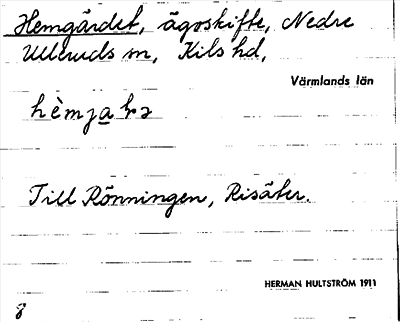 Hemgärdet, ägoskifte, Nedre
Ulleruds sn, Kils hd,
Värmlands län
hèmjaɫə
Till Rönningen, Risäter.
HERMAN HULTSTRÖM 1911